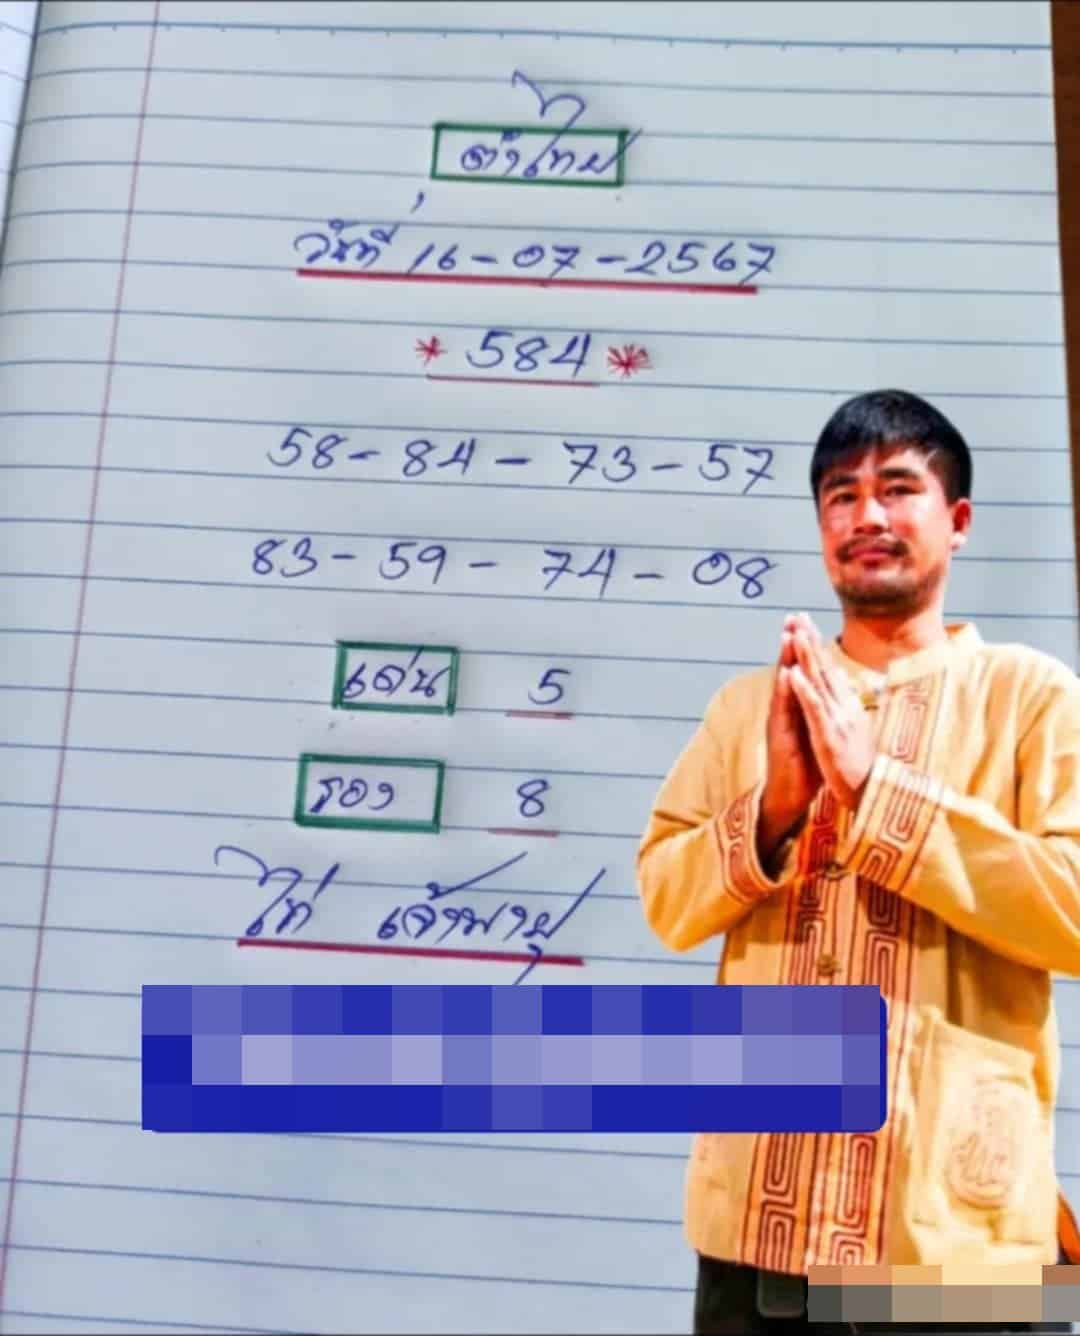 ดำไทย
วันที่ 16-07-2567
* 584 *
58-84-73-57
83-59-74-08
เด่น 5
รอง 8
ไก่ เจ้าพายุ